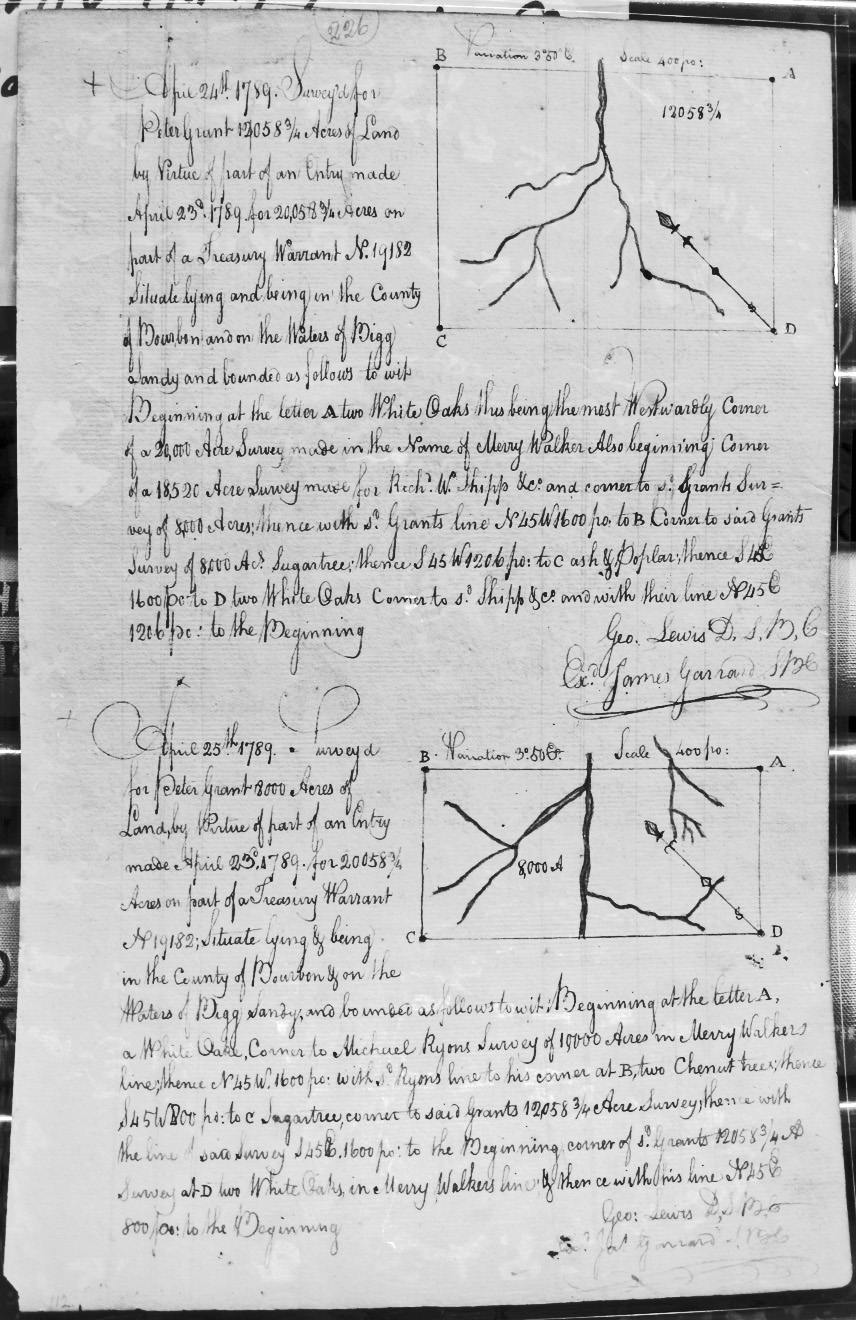 226
B Variation 3°50'E. Scale 400 po: A
12058 3/4
C D
April 24th 1789. Survey'd for
Peter Grant 12058 3/4 Acres of Land
by Virtue of part of an Entry made
April 23d. 1789 for 20,058 3/4 Acres on
part of a Treasury Warrant N. 19182
Situate lying and being in the County
of Bourbon and on the Waters of Bigg
Sandy and bounded as follows to wit
Beginning at the letter A two White Oaks this being the most Westwardly Corner
of a 20,000 Acre Survey made in the Name of Merry Walker Also beginning Corner
of a 18520 Acre Survey made for Richd. W. Shipp &co. and corner to sd. Grants Sur=
vey of 8,000 Acres; thence with sd. Grants line N45W 1600 po. to B Corner to said Grants
Survey of 8,000 Acs. Sugartree; thence S45W 1206 po: to C ash & Poplar; thence S45E
1600 po: to D two White Oaks Corner to sd. Shipp &co. and with their line N45E
1206 po: to the Beginning
Geo. Lewis D, S, B, C
Exd. James Garrard SBC
B. Variation 3°.50'E. Scale 400 po: A
8,000 A
C D
April 25th 1789. Survey'd
for Peter Grant 8000 Acres of
Land, by Virtue of part of an Entry
made April 23d. 1789. for 20058 3/4
Acres on part of a Treasury Warrant
N19182; Situate lying & being
in the County of Bourbon & on the
Waters of Bigg Sandy, and bounded as follows to wit; Beginning at the letter A,
a White Oak, Corner to Michael Ryons Survey of 10000 Acres in Merry Walkers
line; thence N45W. 1600 po: with sd. Ryons line to his corner at B, two Chesnut trees; thence
S45W 800 po: to C Sugartree, corner to said Grants 12,058 3/4 Acre Survey; thence with
the line of said Survey S45E. 1600 po: to the Beginning corner of sd. Grants 12058 3/4 A
Survey at D two White Oaks, in Merry Walkers line & thence with his line N45E
800 po: to the Beginning
Geo: Lewis D, S B C
Exd. Jas. Garrard SBC